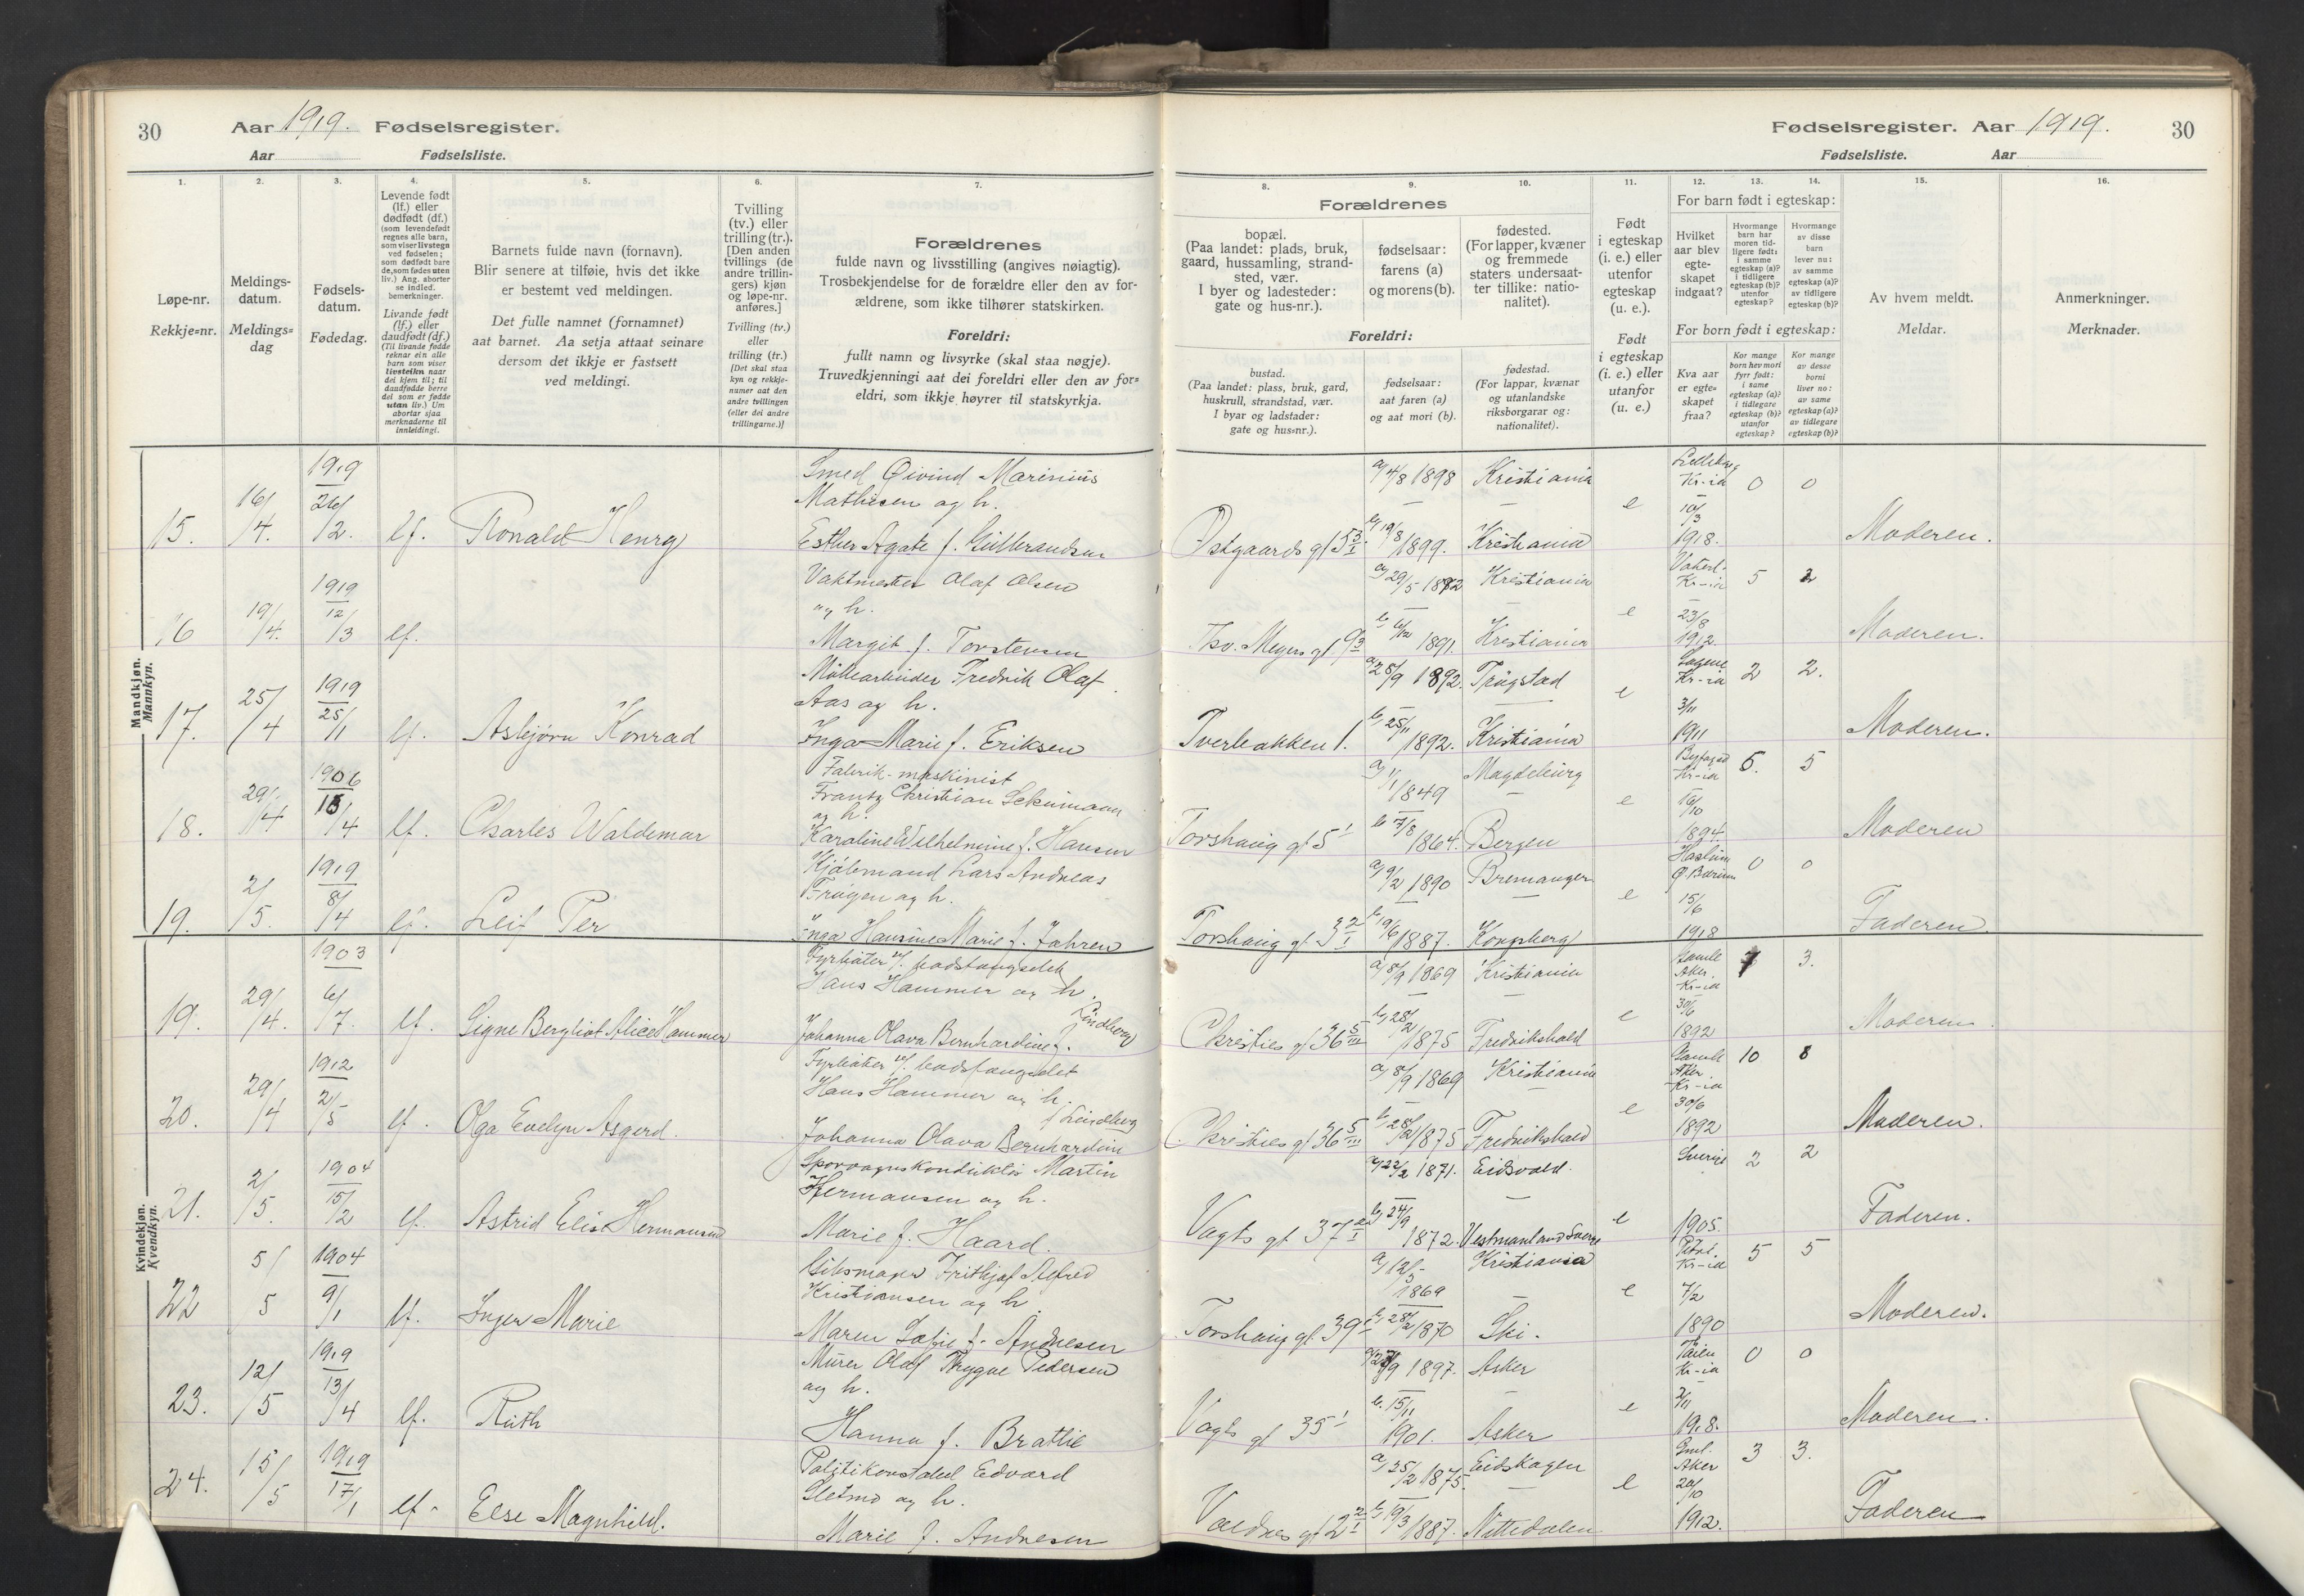 30
Aar 1919. Fødselsregister.
Aar
Fødselsliste.
1.
2.
3.
4.
5.
6.
7.
Løpe-nr.
Rekkje=nr.
Meldings-
datum.
Meldings=
dag
Fødsels-
datum.
Fødedag.
Levende født
(lf.) eller
dødfødt (df.)
(som levendefødt
regnes alle barn,
som viser livstegn
ved fødselen;
som dødfødt bare
de, som fødes uten
liv.) Ang. aborter
se indled.
bemerkninger.
Livande født
(lf.) eller
daudfødt (df.)
(Til livande fødde
reknar ein alle
barn som viser
livsteikn naar
dei kjem til; til
daudfødde berre
dei som er fødde
utan liv.) Um
abortar sjaa
merknaderne til
innleidingi.
Barnets fulde navn (fornavn).
Blir senere at tilføie, hvis det ikke
er bestemt ved meldingen.
Det fulle namnet (fornamnet)
aat barnet. Aa setja attaat seinare
dersom det ikkje er fastsett
ved meldingi.
Tvilling
(tv.) eller
trilling (tr.).
[Den anden
tvillings (de
andre trillin-
gers) kjøn
og løpe-nr.
anføres.]
Tvilling (tv.)
eller
trilling (tr.)
[Det skal staa
kyn og rekkje-
numer aat den
andre tvillingen
(eller dei andre
trillingarne.)]
Forældrenes
fulde navn og livsstilling (angives nøiagtig).
Trosbekjendelse for de forældre eller den av for-
ældrene, som ikke tilhører statskirken.
Foreldri:
fullt namn og livsyrke (skal staa nøgje).
Truvedkjenningi aat dei foreldri eller den av for=
eldri, som ikkje høyrer til statskyrkja.
Mandkjøn.
Mannkyn.
15.
16/4.
1919
26/2.
lf.
Ronald Henry
Smed Øivind Marinius
Mathisen og h.
Esther Agate f. Gulbrandsen
16
19/4.
1919
12/3
lf.
Vaktmester Olaf Olsen
og h.
Margit f. Torstensen
17.
25/4
1919
25/1
lf.
Asbjørn Konrad
Møllearbeider Fredrik Olaf
Aas og h.
Inga Marie f. Eriksen
18.
29/4
1906
15/4
lf.
Charles Waldemar
Fabrik-maskinist
Frantz Christian Schumann
og h.
Karoline Wilhelmine f. Hansen
19.
2/5.
1919
8/4
lf.
Leif Per
Kjøbmand Lars Andreas
Frøgen og h.
Inga Hansine Marie f. Jahren
Kvindekjøn.
Kvendkyn.
19.
29/4.
1903
6/7.
lf.
Signe Bergliot Alice Hammer
Fyrbøter v/. bodsfængselet
Hans Hammer og h.
Johanna Olava Bernhardine f.
Lindberg
20.
29/4
1912
2/5
lf.
Olga Evelyn Asgerd.
Fyrbøter v/. bodsfængselet
Hans Hammer og h.
f. Lindberg
Johanna Olava Bernhardine
21.
2/5.
1904
15/2
lf.
Astrid Elise Hermansen
Sporvognskonduktør Martin
Hermansen og h.
Marie f. Haard.
22
5/5
1904
9/1
lf.
Inger Marie
Gibsmager Frithjof Alfred
Kristiansen og h.
Maren Sofie f. Andresen
23.
12/5
1919
13/4
lf.
Ruth
Murer Olaf Trygve Pedersen
og h.
Hanna f. Brattlie
24.
15/5
1919
17/1
lf.
Else Magnhild.
Politikonstabel Edvard
Sletmo og h.
Marie f. Andresen
Fødselsregister. Aar 1919.
30
Fødselsliste.
Aar
8.
9.
10.
11.
12.
13.
14.
15.
16.
Forældrenes
bopæl.
(Paa landet: plads, bruk,
gaard, hussamling, strand-
sted, vær.
I byer og ladesteder:
gate og hus-nr.).
fødselsaar:
farens (a)
og morens (b).
fødested.
(For lapper, kvæner
og fremmede
staters undersaat-
ter tillike: natio-
nalitet).
Foreldri:
bustad.
(Paa landet: plass, bruk, gard,
huskrull, strandstad, vær.
I byar og ladstader:
gate og hus=nr.).
fødselsaar:
aat faren (a)
og aat mori (b).
fødestad.
(For lappar, kvænar
og utanlandske
riksborgarar og:
nationalitet).
Født
i egteskap
(i. e.) eller
utenfor
egteskap
(u. e.).
Født
i egteskap
(i. e.) eller
utanfor
(u. e.)
For barn født i egteskap:
Hvilket
aar blev
egte-
skapet
indgaat?
Hvormange
barn har
moren tid-
ligere født:
i samme
egteskap (a)?
i tidligere
egteskap (b)?
utenfor
egteskap?
Hvormange
av disse
barn
lever nu:
av samme
egteskap (a)?
av tidligere
egteskap (b)?
For born født i egteskap:
Kva aar
er egte=
skapet
fraa?
Kor mange
born hev mori
fyrr født:
i same
egteskap (a)?
i tidlegare
egteskap (b)?
utanfor
egteskap?
Kor mange
av desse
borni
liver no:
av same
egteskap (a)?
av tidlegare
egteskap (b)?
Av hvem meldt.
Meldar.
Anmerkninger.
Merknader.
Østgaards gt 5 3/I
a, 4/8 1898
b, 19/8 1899.
Kristiania
Kristiania
e
Kr-ia
10/3
1918.
0
0
Moderen.
Thv. Meyers gt 9 3
a, 29/5 1882
b 6/12 1891.
Kristiania
Kristiania
e
Kr-ia
23/8
1912.
5
2
Moderen.
Tverbakken 1.
a, 28/9 1892.
b, 25/11 1892.
Trøgstad
Kristiania
e
Sagene
Kr-ia
3/11
1911
2
2.
Moderen.
Torshaug gt 5 1
a, 1/1 1849
b 7/8 1864.
Magdeburg
Bergen
e
Kr-ia
16/10
1894.
6.
5
Moderen
Torshaug gt 3 2/I
a, 9/2 1890
b, 19/6 1887.
Bremanger
Kongsberg
e
Haslum
Bærum
15/6
1918
0
0
Faderen.
Christies gt 36 5/III
a, 8/9 1869
b, 28/2 1875
Kristiania
Fredrikshald
e
Gamle
Aker.
Kr-ia
30/6
1892
7
3.
Moderen.
Christies gt 36 5/III
a, 8/9 1869
b, 28/2 1875
Kristiania
Fredrikshald
e
Gamle
Aker
Kr-ia
30/6
1892
10
8
Moderen.
Vogts gt 37 2/I
a, 22/2 1871.
b, 24/9 1872.
Eidsvold.
Vestmanland Sverige
e
Sverige
1905.
2
2
Faderen.
Torshaug gt. 39 1
a, 12/5 1869
b, 28/2 1870
Kristiania
Ski.
e
Petri.
Kr-ia
7/2
1890
5
5
Moderen.
Vogts gt 35 1
a, 27/9 1897.
b. 15/11 1901.
Asker
Asker
e
Tøien
Kr-ia
2/11
1918.
0
0
Moderen.
Valdres gt 2 2/I
a, 25/2 1875.
b, 19/3 1887.
Eidskogen
Nittedalen
e
Gml.
Aker
20/10
1912.
3
3.
Faderen